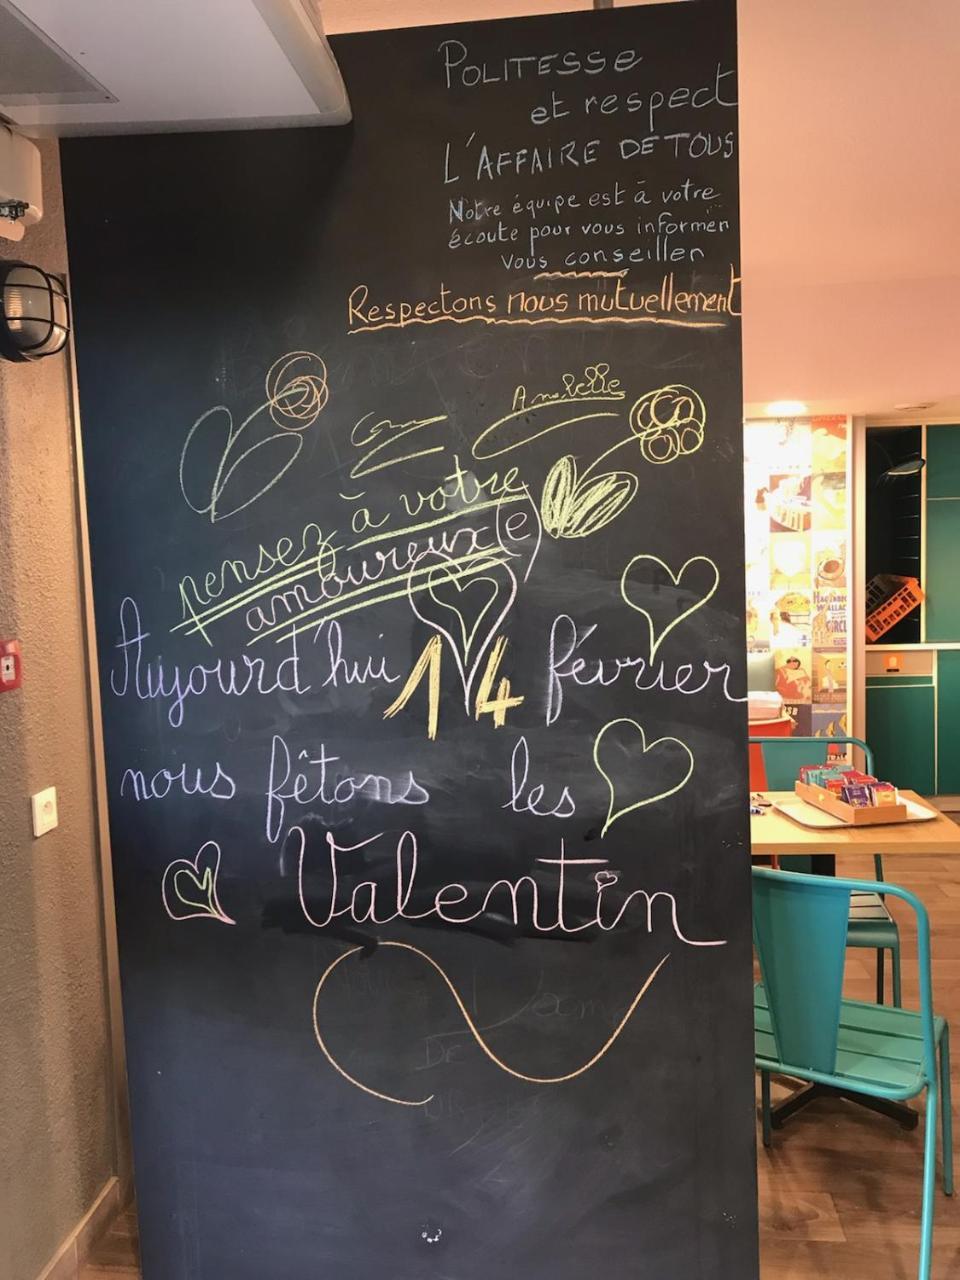 POLITESSE
et respect
L'AFFAIRE DE TOUS
Notre équipe est à votre
écoute pour vous informer
vous conseiller
Respectons nous mutuellement
pensez à votre
amoureux(e)
Aujourd'hui 14 février
nous fêtons les
Valentin